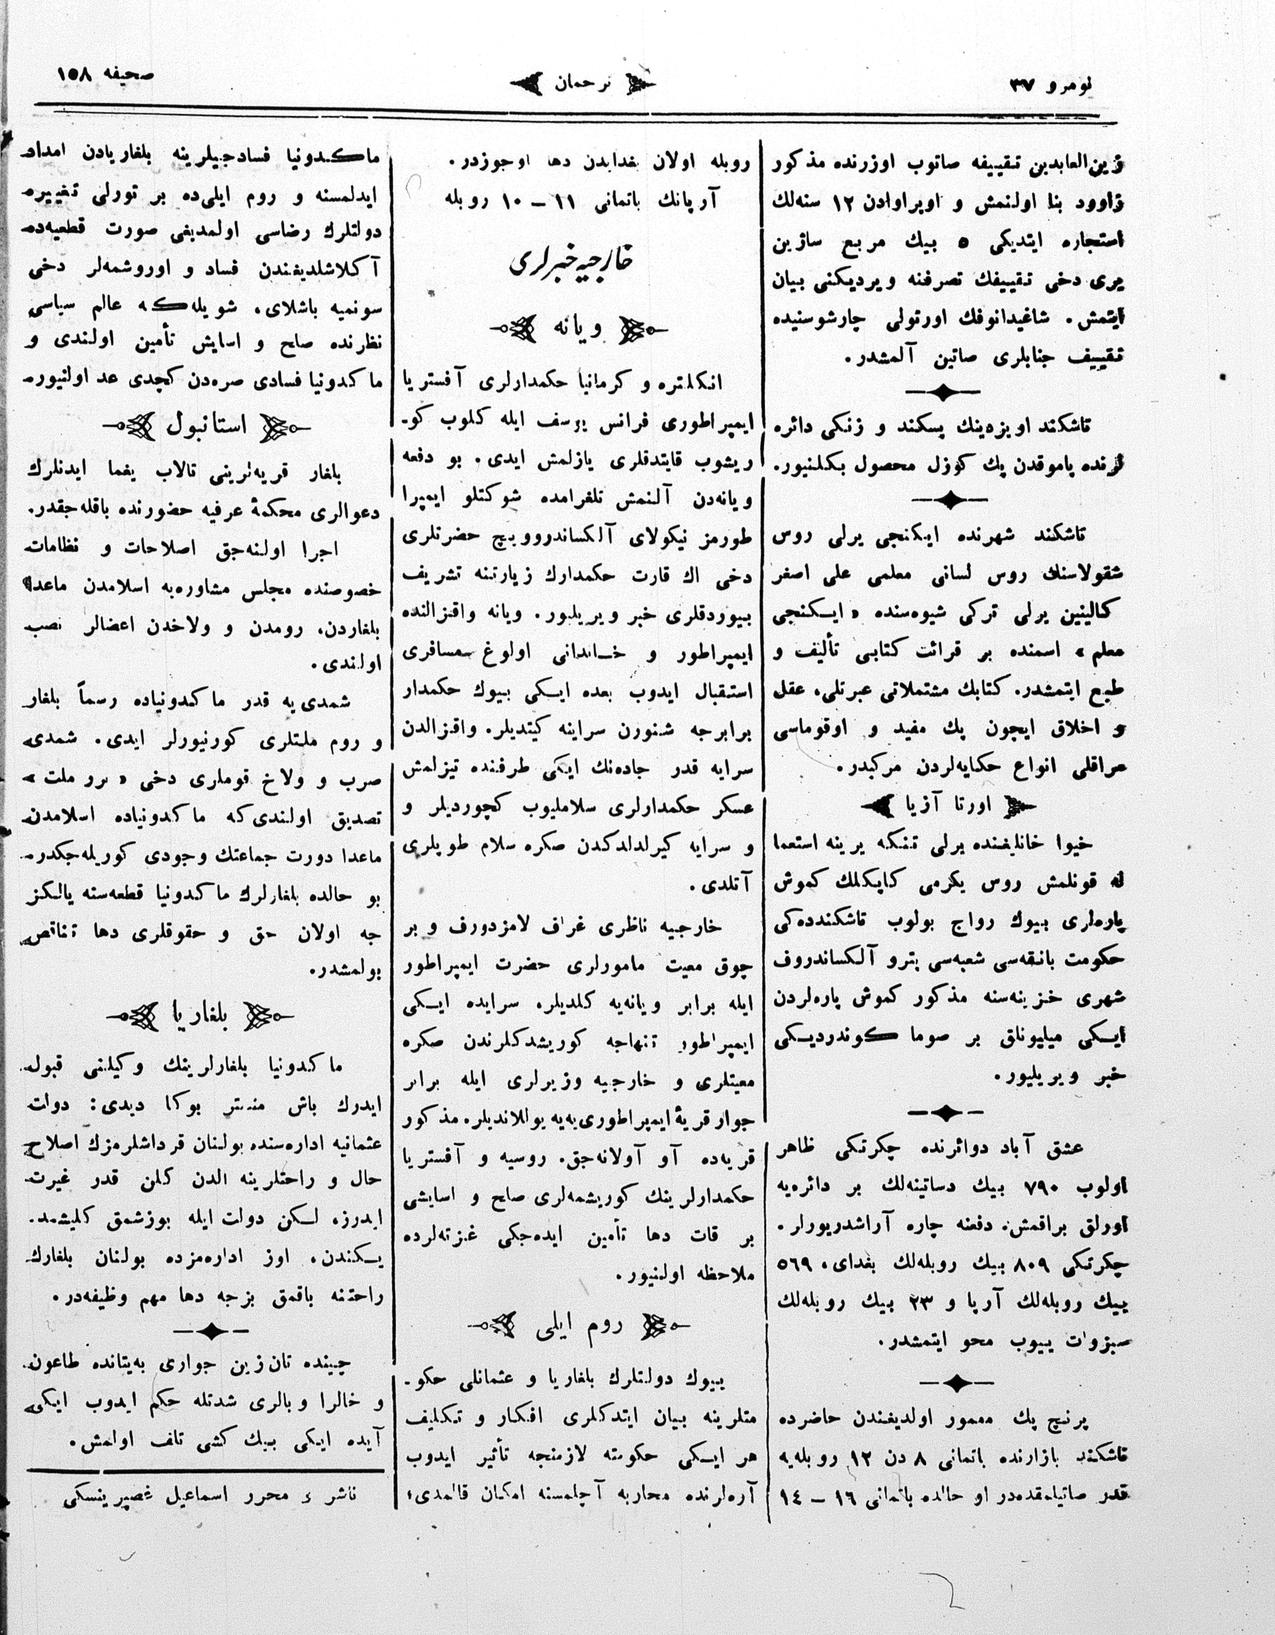 نومرو ٣٧
ترجمان
صحیفه ١٥٨
زین العابدین تقییفه صاتوب اوزرنده مذكور
زاوود بنا اولنمش و اویراوادن ١٢ سنه‌لك
استجاره ایتدیكی ٥ بیك مربع ساژین
یری دخی تقییفك تصرفنه ویردیكنی بیان
ایتمش. شاغیدانوفك اورتولی چارشوسنیده
تقییف جنابلری صاتین آلمشدر.
تاشكند اویزدینك پسكند و زنكی دائره
لرنده پاموقدن پك كوزل محصول بكلنیور.
تاشكند شهرنده ایكنجی یرلی روس
شقولاسنك روس لسانی معلمی علی اصغر
كالینین یرلی تركی شیوه‌سنده «ایكنجی
معلم» اسمنده بر قرائت كتابی تألیف و
طبع ایتمشدر. كتابك مشتملاتی عبرتلی، عقل
و اخلاق ایچون پك مفید و اوقوماسی
مراقلی انواع حكایه‌لردن مركبدر.
اورتا آزیا
خیوا خانلیغنده یرلی تنكه یرینه استعما
له قونلمش روس یكرمی كاپكلك كموش
پاره‌لری بیوك رواج بولوب تاشكندده‌كی
حكومت بانقه‌سی شعبه‌سی پترو آلكساندروف
شهری خزینه‌سنه مذكور كموش پاره‌لردن
ایكی میلیونلق بر صوما كوندردیكی
خبر ویریلیور.
عشق آباد دوائرنده چكرتكی ظاهر
اولوب ٧٩٠ بیك دساتینه‌لك بر دائره‌یه
اورلق براقمش. دفعنه چاره آراشدریورلر.
چكرتكی ٨٠٩ بیك روبله‌لك بغدای، ٥٦٩
بیك روبله‌لك آرپا و ٢٣ بیك روبله‌لك
سبزوات ییوب محو ایتمشدر.
پرنج پك معمور اولدیغندن حاضرده
تاشكند بازارنده باتمانی ٨ دن ١٢ روبله‌یه
قدر صاتیلمقده‌در او حالده باتمانی ١٦ – ١٤
روبله اولان بغدایدن دها اوجوزدر.
آرپانك باتمانی ١١ – ١٠ روبله
خارجیه خبرلری
ویانه
انكلتره و كرمانیا حكمدارلری آفستریا
ایمپراطوری فرانس یوسف ایله كلوب كو-
ریشوب قایتدقلری یازلمش ایدی. بو دفعه
ویانه‌دن آلنمش تلغرامده شوكتلو ایمپرا
طورمز نیكولای آلكساندروویچ حضرتلری
دخی اك قارت حكمدارك زیارتنه تشریف
بیوردقلری خبر ویریلیور. ویانه واقزالنده
ایمپراطور و خاندانی اولوغ مسافری
استقبال ایدوب بعده ایكی بیوك حكمدار
برابرجه شنورن سراینه كیتدیلر. واقزالدن
سرایه قدر جاده‌نك ایكی طرفنده تیزلمش
عسكر حكمدارلری سلاملیوب كچوردیلر و
و سرایه كیرلدلدكدن صكره سلام طوپلری
آتلدی.
خارجیه ناظری غراف لامزدورف و بر
چوق معیت مامورلری حضرت ایمپراطور
ایله برابر ویانه‌یه كلدیلر. سرایده ایكی
ایمپراطور تنهاجه كوریشدكلرندن صكره
معیتلری و خارجیه وزیرلری ایله برابر
جوار قریۀ ایمپراطوری‌یه یوللاندیلر. مذكور
قریه‌ده آو آولانه‌جق. روسیه و آفستریا
حكمدارلرینك كوریشمه‌لری صلح و اسایشی
بر قات دها تأمین ایده‌جكی غزته‌لرده
ملاحظه اولنیور.
روم ایلی
بیوك دولتلرك بلغاریا و عثمانلی حكو-
متلرینه بیان ایتدكلری افكار و تكلیف
هر ایكی حكومته لازمنجه تأثیر ایدوب
آره‌لرنده محاربه آچلمسنه امكان قالمدی؛
ماكدونیا فسادجیلرینه بلغاریادن امداد
ایدلمسنه و روم ایلی‌ده بر تورلی تغییره
دولتلرك رضاسی اولمدیغی صورت قطعیه‌ده
آكلاشلدیغندن فساد و اوروشمه‌لر دخی
سونمیه باشلادی. شویله‌كه عالم سیاسی
نظرنده صلح و اسایش تأمین اولندی و
ماكدونیا فسادی صره‌دن كچدی عد اولنیور.
استانبول
بلغار قریه‌لرینی تالاب یغما ایدنلرك
دعوالری محكمۀ عرفیه حضورنده باقله‌جقدر.
اجرا اولنه‌جق اصلاحات و نظامات
خصوصنده مجلس مشاوره‌یه اسلامدن ماعدا
بلغاردن، رومدن و ولاخدن اعضالر نصب
اولندی.
شمدی‌یه قدر ماكدونیاده رسماً بلغار
و روم ملتلری كورنیورلر ایدی. شمدی
صرب و ولاخ قوملری دخی «برر ملت»
تصدیق اولندی‌كه ماكدونیاده اسلامدن
ماعدا دورت جماعتك وجودی كوریله‌جكدر.
بو حالده بلغارلرك ماكدونیا قطعه‌سنه یالكز
جه اولان حق و حقوقلری دها تناقص
بولمشدر.
بلغاریا
ماكدونیا بلغارلرینك وكیلنی قبول
ایدرك باش منستر بوكا دیدی: دولت
عثمانیه اداره‌سنده بولنان قرداشلرمزك اصلاح
حال و راحتلرینه الدن كلن قدر غیرت
ایدرز، لكن دولت ایله بوزشمق كلیشمد.
یكندن، اوز اداره‌مزده بولنان بلغارك
راحتنه باقمق بزجه دها مهم وظیفه‌در.
چینده تان‌زین جواری به‌یتانده طاعون
و خالرا وبالری شدتله حكم ایدوب ایكی
آیده ایكی بیك كشی تلف اولمش.
ناشر و محرر اسماعیل غصپرینسكی